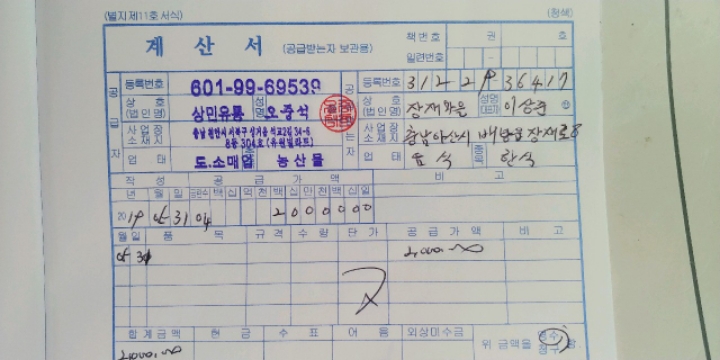 (별지 제11호 서식) (청색)
계 산 서 (공급받는자 보관용) 책 번 호 권 호
일련번호 -
공급자 등록번호 601-99-69539 등록번호 312-29-36417
상 호 (법인명) 상민유통 성명 오중석 상 호 (법인명) 성명
사업장 소재지 충남 천안시 서북구 성거읍 석교2길 34-6 사업장 소재지 충남아산시 배방읍 장재로8
8동 304호 (유원빌라트)
업 태 도.소매업 농산물 업 태 음식 종목 한식
작 성 공 급 가 액 비 고
년 월 일 공란수 백 십 억 천 백 십 만 천 백 십 일
2019 31 04 2 0 0 0 0 0 0
월 일 품 목 규 격 수 량 단 가 공 급 가 액 비 고
2,000.
합 계 금 액 현 금 수 표 어 음 외상미수금 위 금액을 영수 청구 함.
2,000.